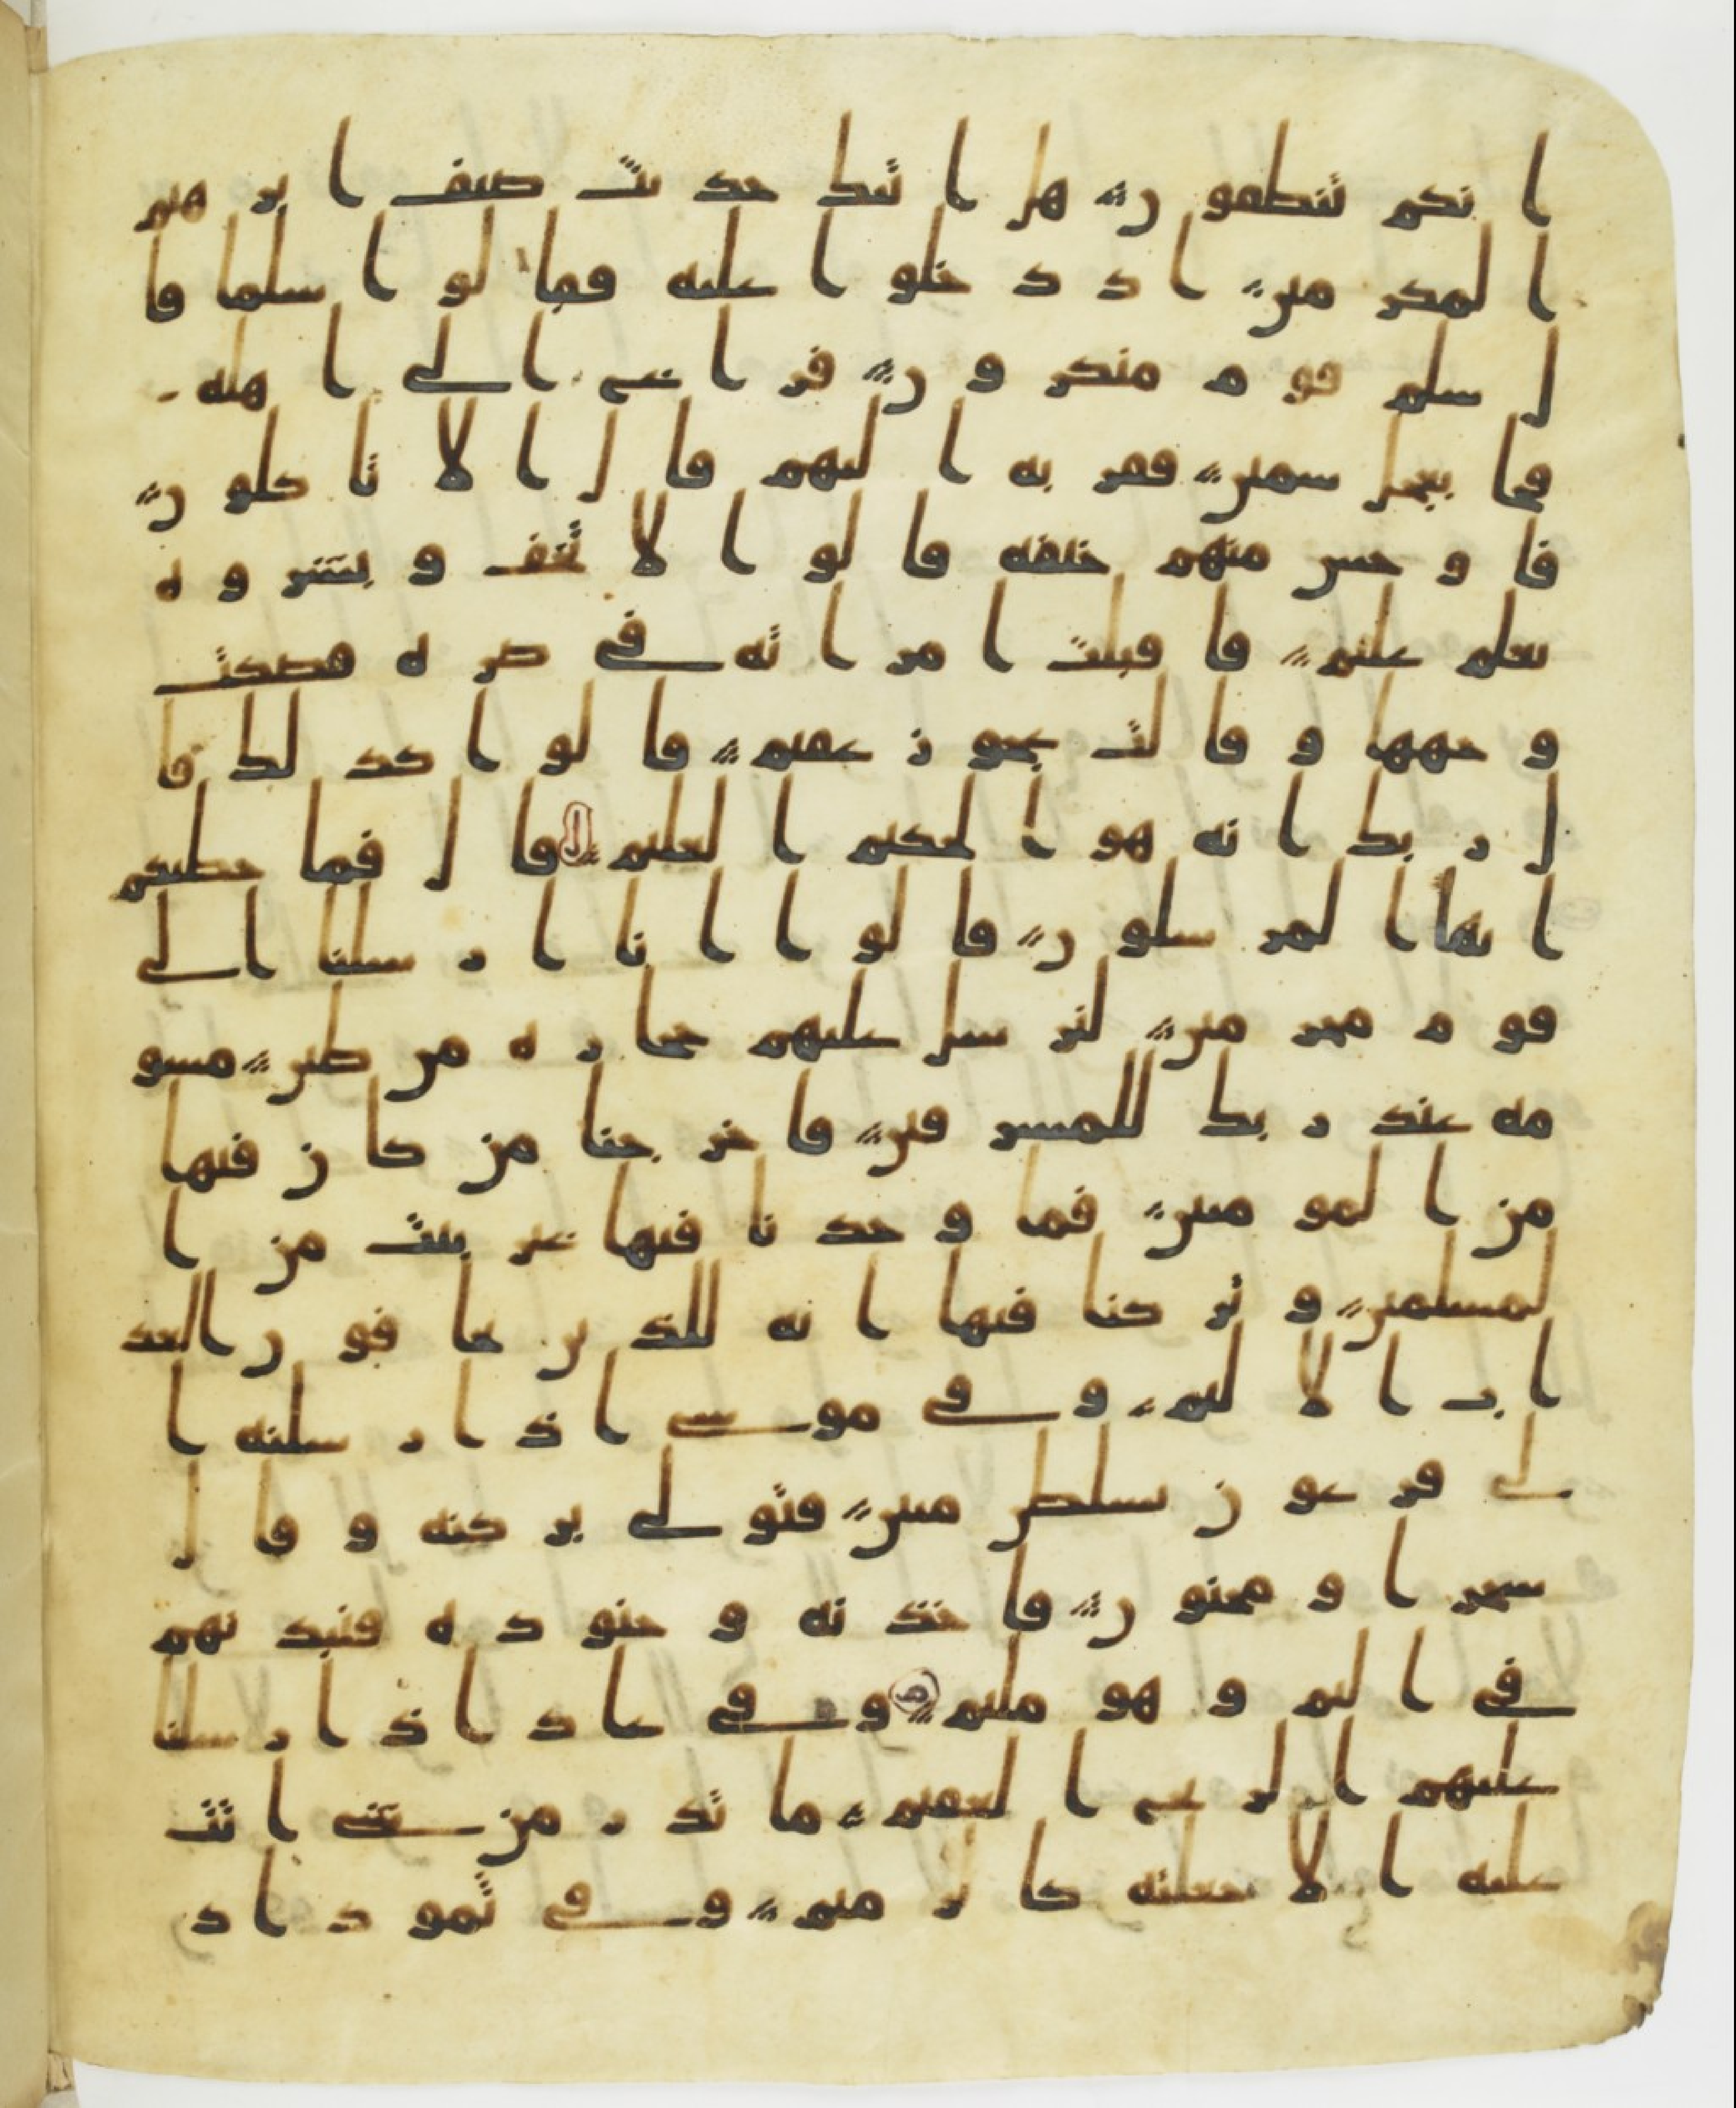 انكم تنطقون هل اتيك حديث ضيف ابرهيم
المكرمين اذ دخلوا عليه فقالوا سلما قا
ل سلم قوم منكرون فراغ الى اهله
فجا بعجل سمين فقربه اليهم قال الا تاكلون
فاوجس منهم خيفه قالوا لا تخف وبشروه
بغلم عليم فاقبلت امراته في صره فصكت
وجهها وقالت عجوز عقيم قالوا كذلك قا
ل ربك انه هو الحكيم العليم قال فما خطبكم
ايها المرسلون قالوا انا ارسلنا الى
قوم مجرمين لنرسل عليهم حجاره من طين مسو
مه عند ربك للمسرفين فاخرجنا من كان فيها
من المومنين فما وجدنا فيها غير بيت من ا
لمسلمين وتركنا فيها ايه للذين يخافون العذ
اب الاليم وفي موسى اذ ارسلنه ا
لى فرعون بسلطن مبين فتولى بركنه وقال
سحر او مجنون فاخذنه وجنوده فنبذنهم
في اليم وهو مليم وفي عاد اذ ارسلنا
عليهم الريح العقيم ما تذر من شي اتت
عليه الا جعلته كالرميم وفي ثمود اذ